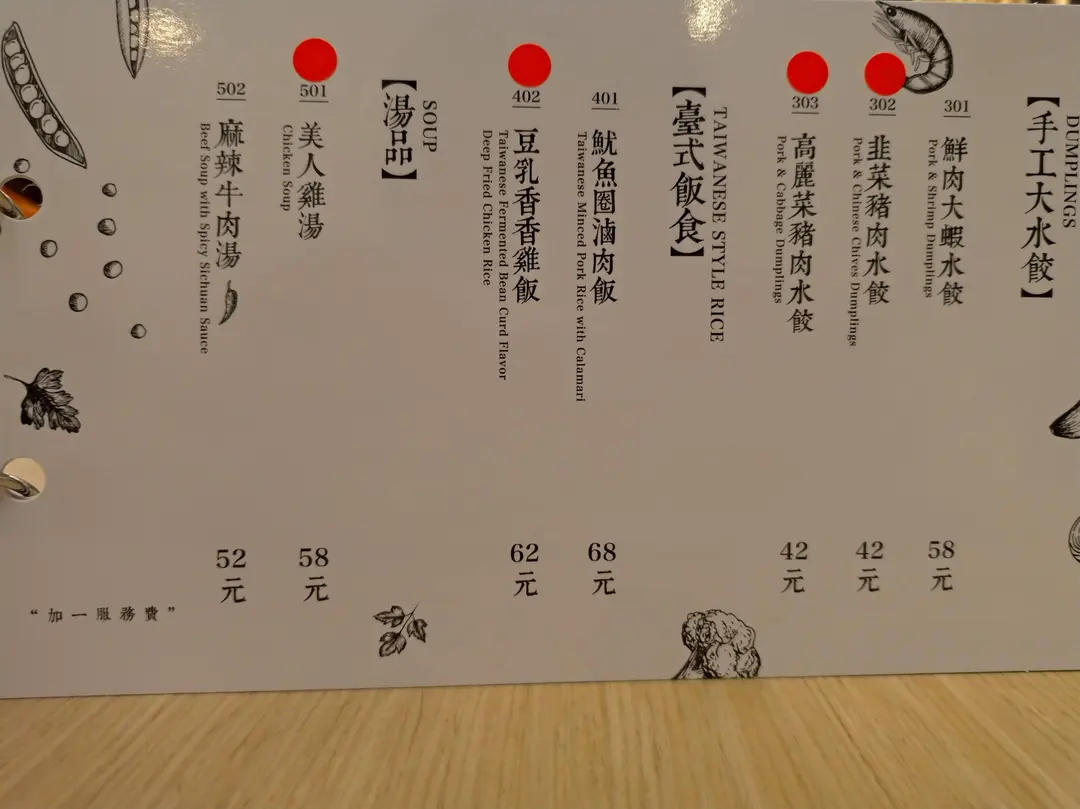 【手工大水餃】
DUMPLINGS
301
鮮肉大蝦水餃
Pork & Shrimp Dumplings
58元
302
韭菜豬肉水餃
Pork & Chinese Chives Dumplings
42元
303
高麗菜豬肉水餃
Pork & Cabbage Dumplings
42元
TAIWANESE STYLE RICE
【臺式飯食】
401
魷魚圈滷肉飯
Taiwanese Minced Pork Rice with Calamari
68元
402
豆乳香香雞飯
Taiwanese Fermented Bean Curd Flavor
Deep Fried Chicken Rice
62元
SOUP
【湯品】
501
美人雞湯
Chicken Soup
58元
502
麻辣牛肉湯
Beef Soup with Spicy Sichuan Sauce
52元
“加一服務費”